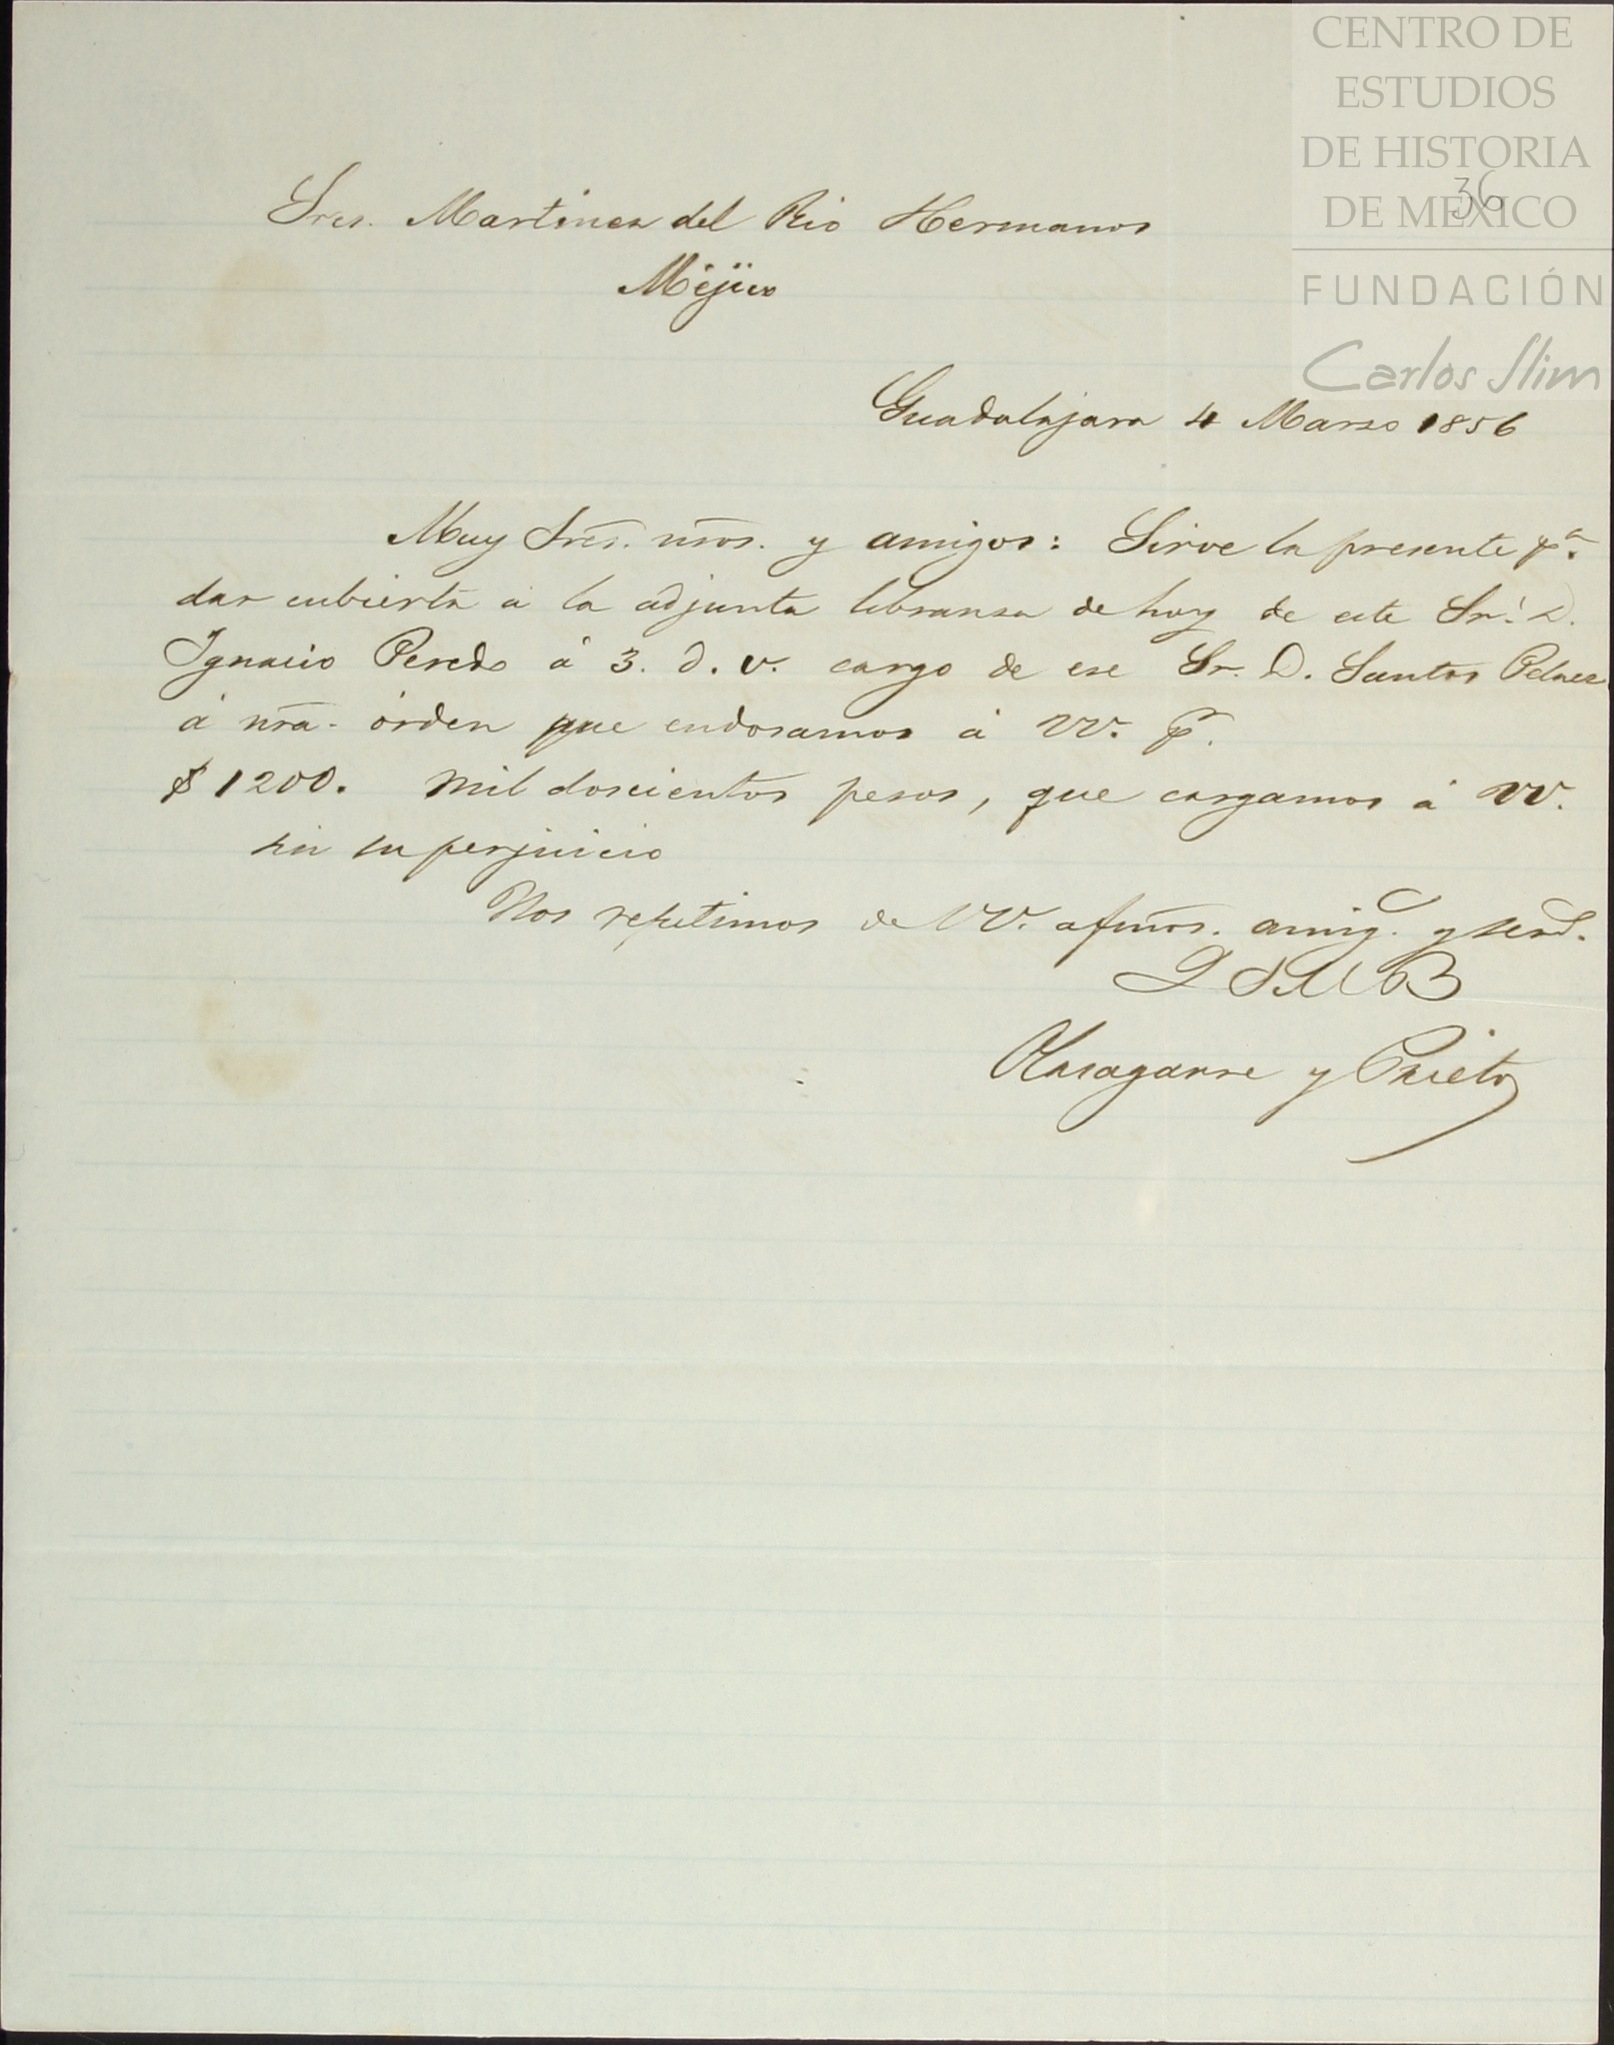 CENTRO DE
ESTUDIOS
DE HISTORIA
DE MÉXICO
36
FUNDACIÓN
Carlos Slim
Sres. Martinez del Rio Hermanos
Méjico
Guadalajara 4 Marzo 1856
Muy Sres. nros. y amigos: Sirve la presente pa.
dar cubierta á la adjunta libranza de hoy de este Sr. D.
Ignacio Peredo á 3. d. v. cargo de ese Sr. D. Santos Pelaez
á nra. órden que endosamos á VV. p.
$ 1200. Mil doscientos pesos, que cargamos á VV.
sin su perjuicio
Nos repetimos de VV. afmos. amig. y serv.
Q S M B
Olasagarre y Prieto